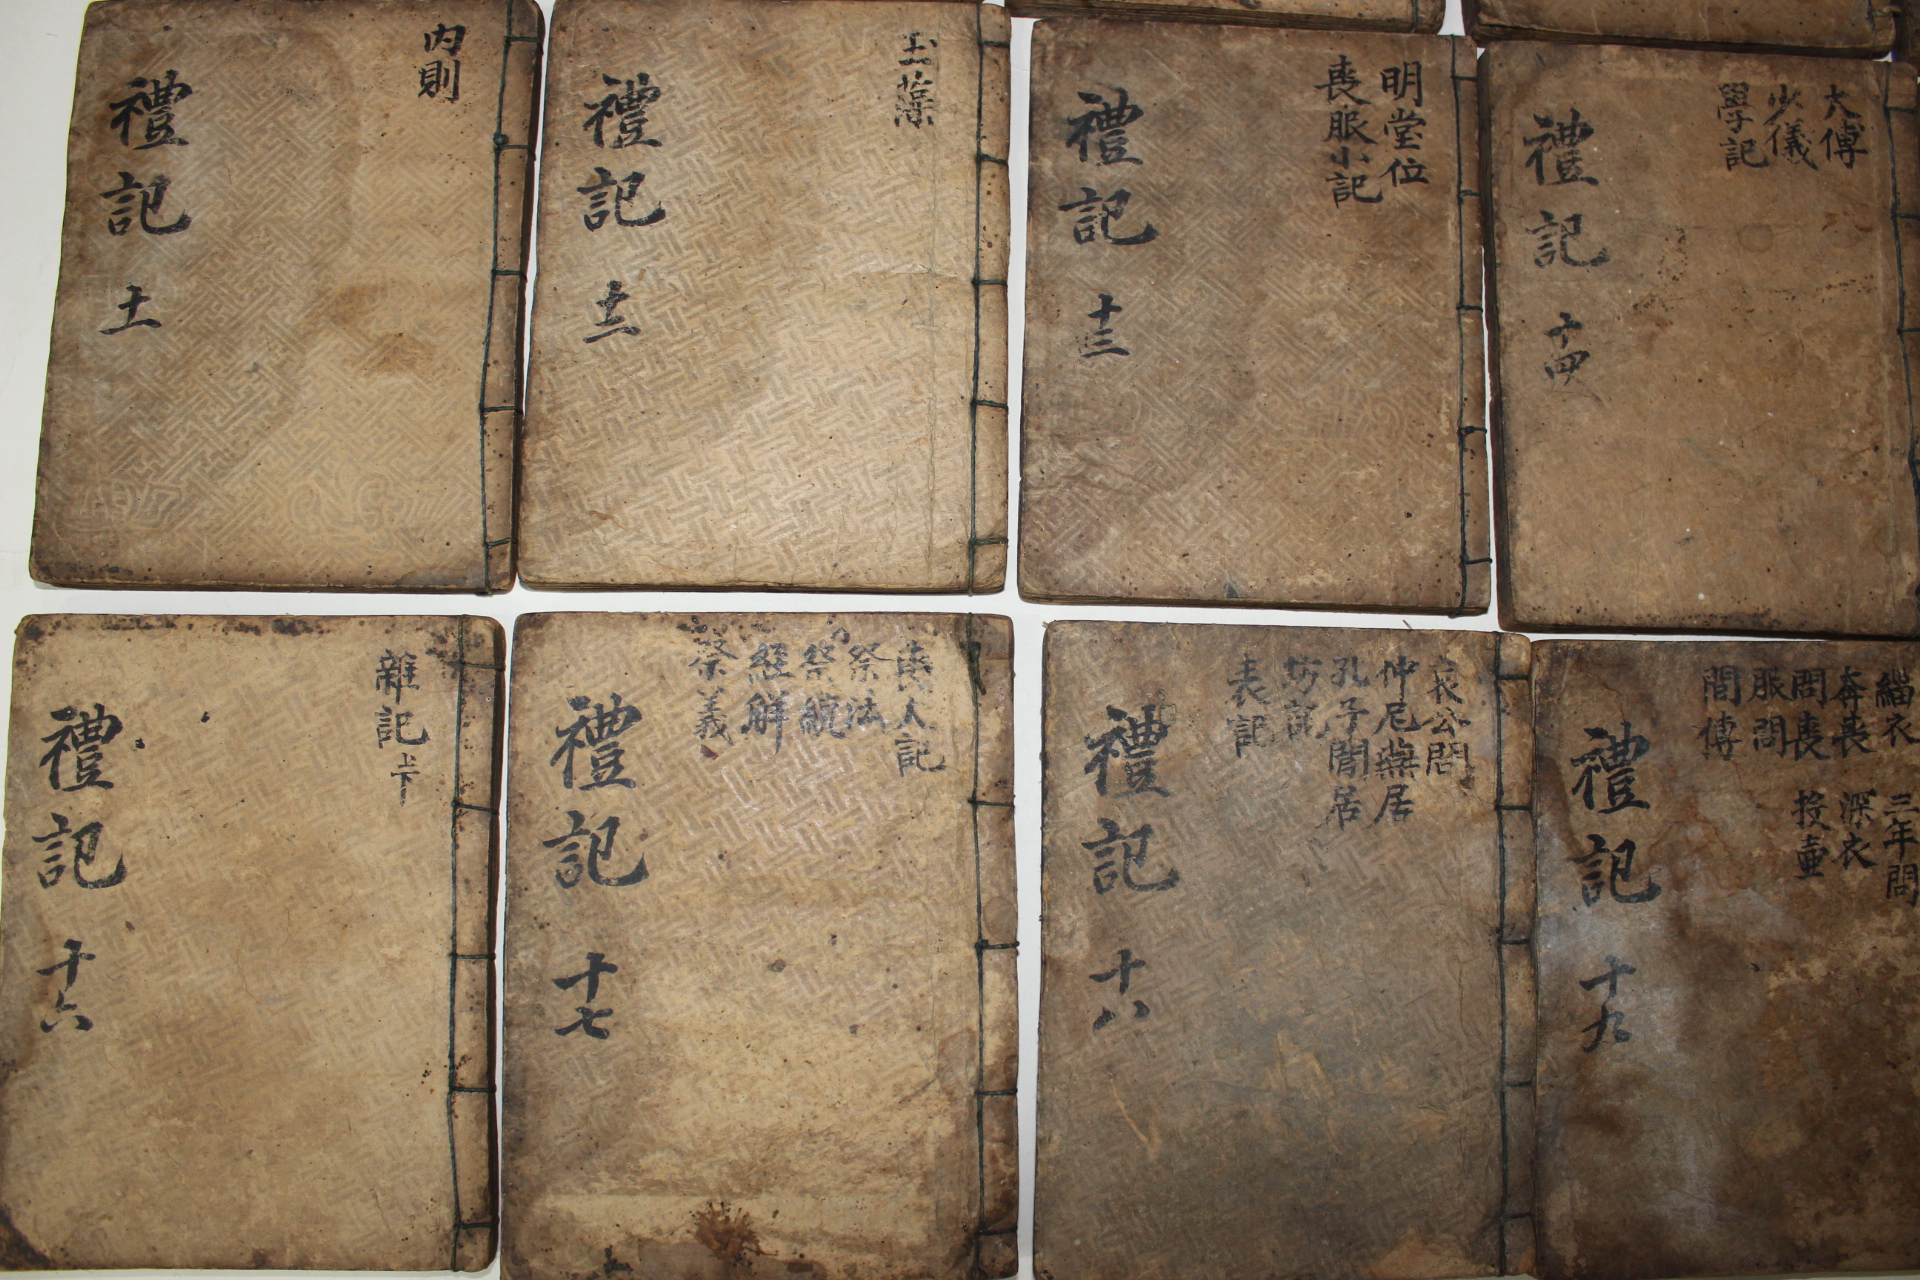 內則
禮記 十一
玉藻
禮記 十二
明堂位
喪服小記
禮記 十三
大傅
少儀
學記
禮記 十四
雜記 上下
禮記 十六
喪大記
祭法
祭統
經解
祭義
禮記 十七
哀公問
仲尼燕居
孔子閒居
坊記
表記
禮記 十八
緇衣 三年問
奔喪 深衣
問喪 投壺
服問
間傅
禮記 十九